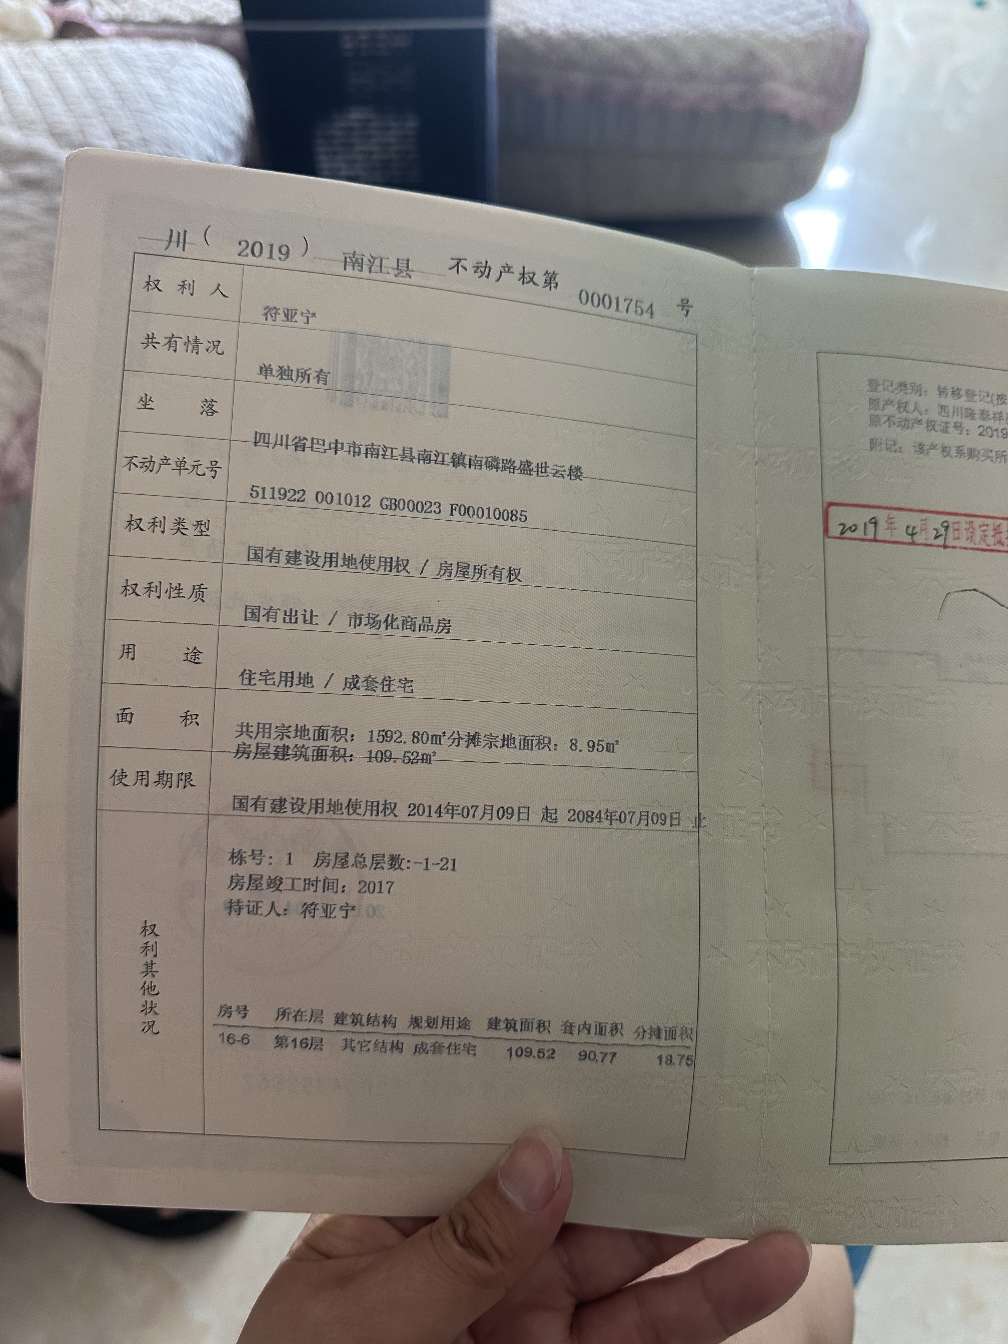 川（ 2019 ） 南江县 不动产权第 0001754 号
权利人 符亚宁
共有情况 单独所有
坐落 四川省巴中市南江县南江镇南磷路盛世云楼
不动产单元号 511922 001012 GB00023 F00010085
权利类型 国有建设用地使用权 / 房屋所有权
权利性质 国有出让 / 市场化商品房
用途 住宅用地 / 成套住宅
面积 共用宗地面积：1592.80㎡分摊宗地面积：8.95㎡
房屋建筑面积：109.52㎡
使用期限 国有建设用地使用权 2014年07月09日 起 2084年07月09日 止
权利其他状况
栋号：1 房屋总层数:-1-21
房屋竣工时间：2017
持证人：符亚宁
房号 所在层 建筑结构 规划用途 建筑面积 套内面积 分摊面积
16-6 第16层 其它结构 成套住宅 109.52 90.77 18.75
登记类别：转移登记(按
原产权人：四川隆泰祥
原不动产权证号：2019
附记：该产权系购买所
2019年4月29日设定抵